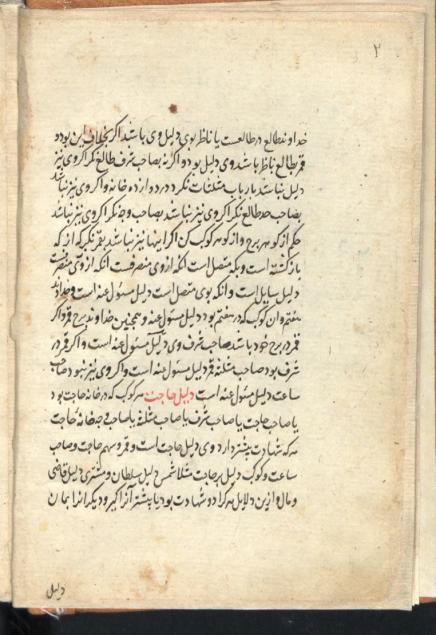 ۲
خداوند طالع در طالعست یا ناظر بوی دلیل وی باشد اگر بخلاف این بود و
قمر بطالع ناظر باشد وی دلیل بود و اگر نه بصاحب شرف طالع نگر اگر وی نیز
دلیل نباشد بارباب مثلثات نگر در دوازده خانه و اگر وی نیز نباشد
بصاحب حد طالع نگر اگر وی نیز نباشد بصاحب وجه نگر اگر وی نیز نباشد
حکم از کوهر برج و از کوهر کوکب کن اگر اینها نیز نباشد بقمر نگر که از که
بازگشته است و بکه متصل است انکه ازوی منصرفست انکه ازوی منصرفست
دلیل سایل است و انکه بوی متصل است دلیل مسئول عنه است و خداوند
هفتم و ان کوکب که در هفتم بود دلیل مسئول عنه و همچنین خداوند برج قمر و اگر
قمر در برج خود باشد صاحب شرف وی دلیل مسئول عنه است و اگر قمر در
شرف بود صاحب مثلثه قمر دلیل مسئول عنه است و اگر وی نیز نبود صاحب
ساعت دلیل مسئول عنه است دلیل حاجت هر کوکب که در خانه حاجت بود
یا صاحب حاجت یا صاحب شرف یا صاحب مثلثه یا صاحب خانه حاجت
هر که شهادت بیشتر دارد وی دلیل حاجت است و قمر و سهم حاجت و صاحب
ساعت و کوکب دلیل بر حاجت مثلا شمس دلیل سلطان و مشتری دلیل قاضی
و مال و ازین دلایل هر کرا دو شهادت بود یا بیشتر آنرا گیر و دیگر انرا بمان
دلیل